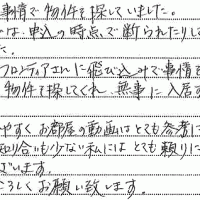 事情で物件を探していました。
は、申込の時点で断られたりして
た。
フロンティアさんに飛び込みで事情を
物件を探してくれ、無事に入居す
やすくお部屋の動画はとても参考に
知り合いも少ない私にはとても頼りに
ざいます。
ろしくお願い致します。